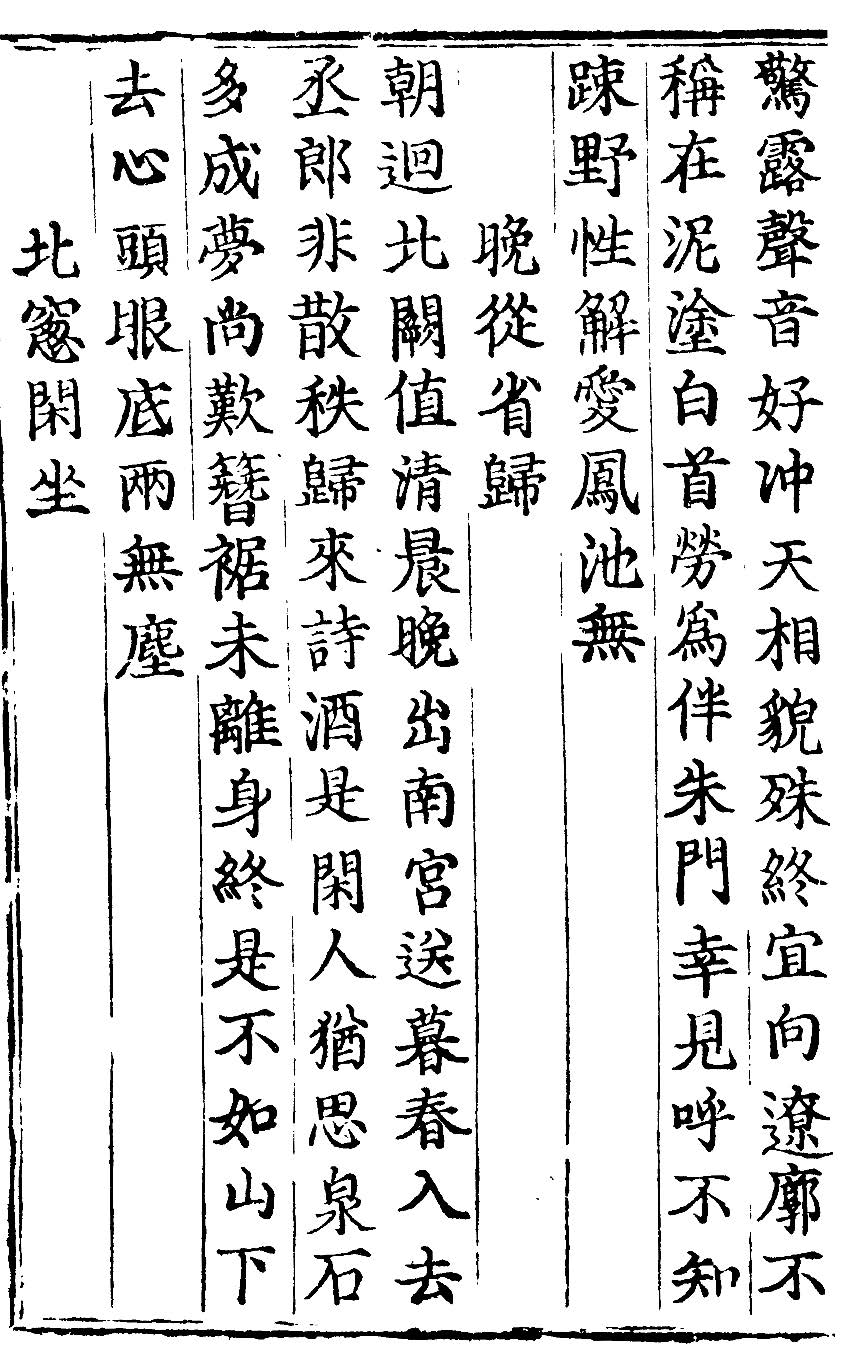 驚露聲音好冲天相貌殊終宜向遼廓不
稱在泥塗白首勞爲伴朱門幸見呼不知
踈野性解愛鳳池無
晚從省歸
朝迴北闕值清晨晚出南宮送暮春入去
丞郎非散秩歸來詩酒是閑人猶思泉石
多成夢尚歎簪裾未離身終是不如山下
去心頭眼底兩無塵
北窻閑坐